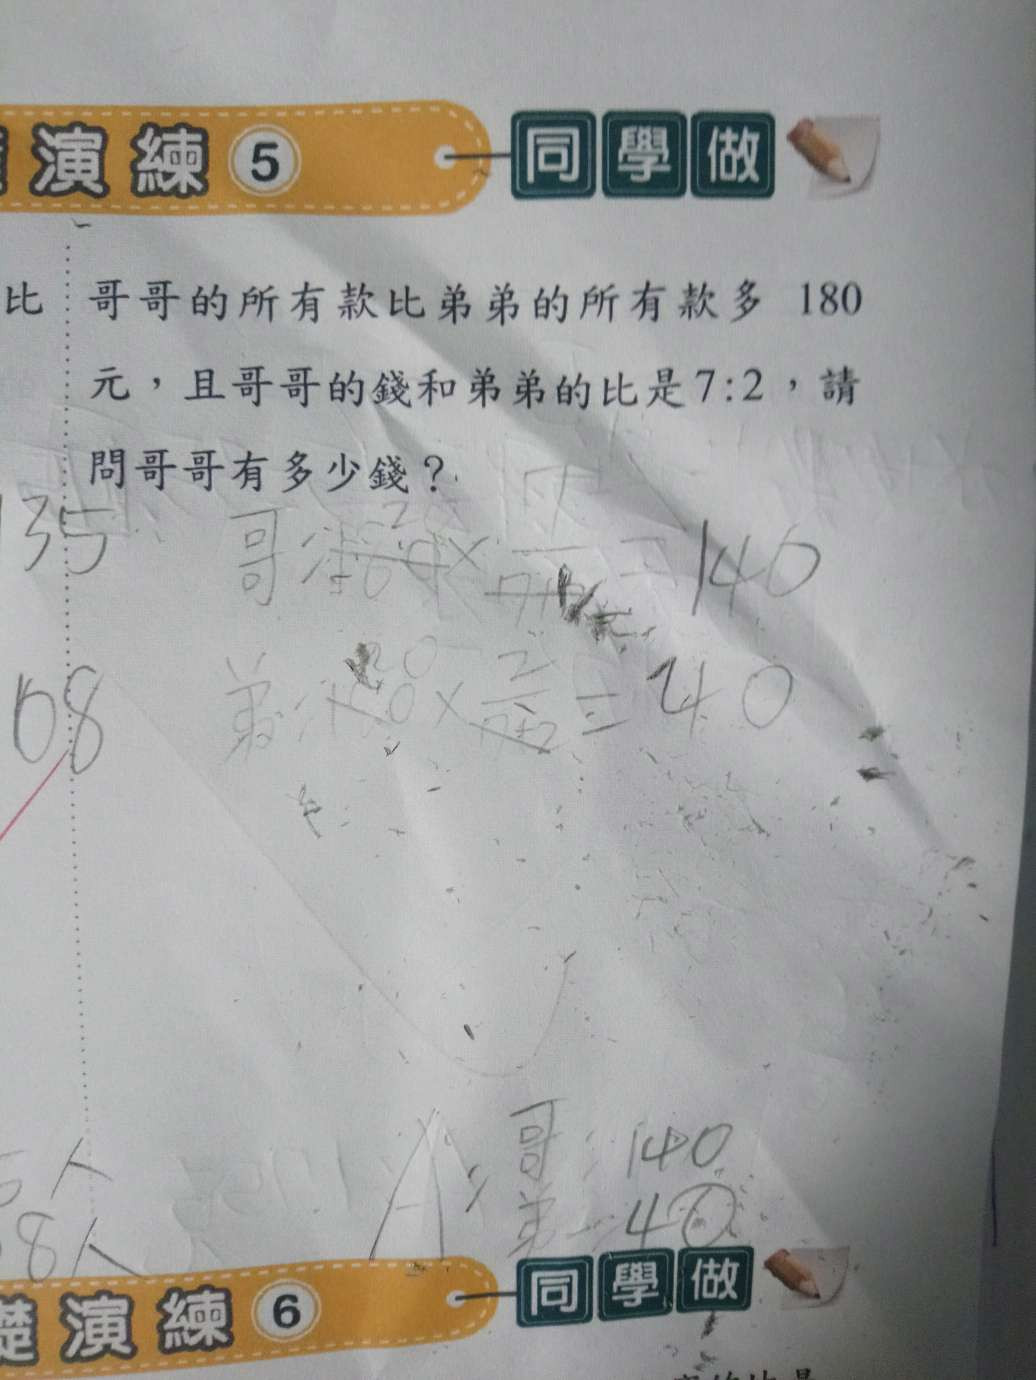 演練 5 同學做
比
哥哥的所有款比弟弟的所有款多 180
元，且哥哥的錢和弟弟的比是7:2，請
問哥哥有多少錢？
135
哥 = 140
108
弟 20 × 2 = 40
A: 哥: 140
人
弟 40
8人
礎演練 6 同學做